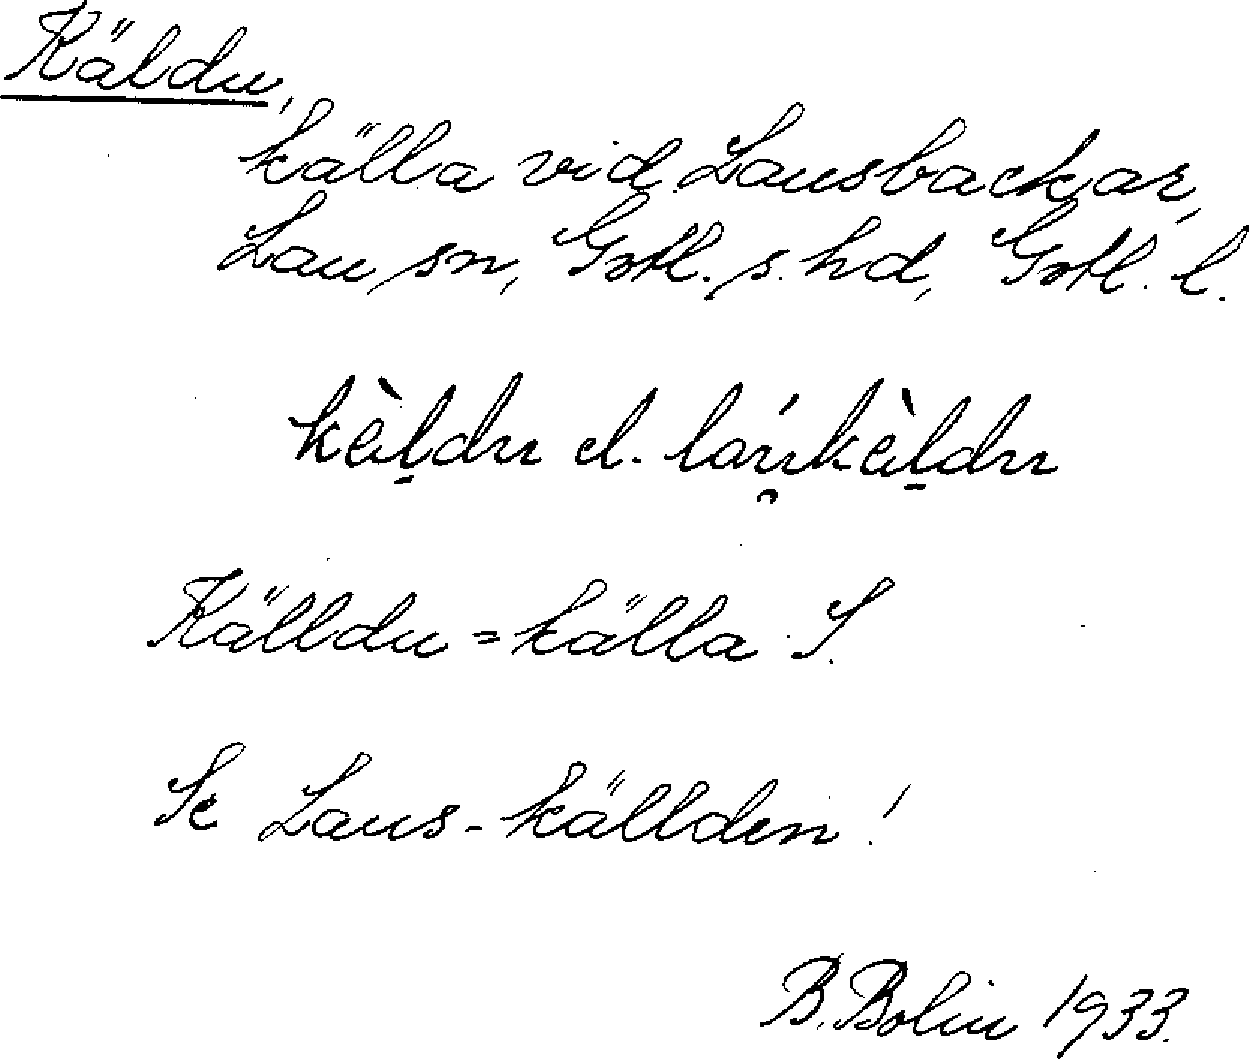 Käldu,
källa vid Lausbackar,
Lau sn, Gotl. s. hd, Gotl. l.
kèl̠du el. láu̯kèl̠du
Källdu = källa S.
Se Laus-källden!
B. Bolin 1933.